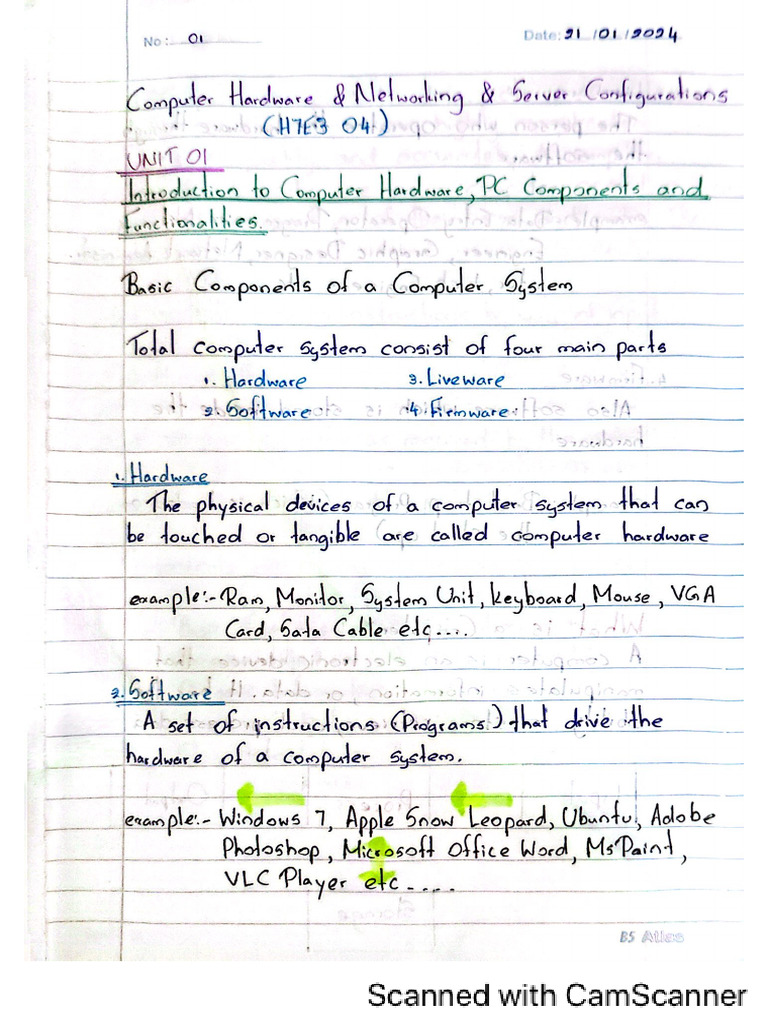 No: 01 Date: 21/01/2024
Computer Hardware & Networking & Server Configurations
(H7E3 04)
UNIT 01
Introduction to Computer Hardware, PC Components and
Functionalities.
Basic Components of a Computer System
Total computer system consist of four main parts
1. Hardware 3. Liveware
2. Software 4. Firmware
1. Hardware
The physical devices of a computer system that can
be touched or tangible are called computer hardware
example:- Ram, Monitor, System Unit, keyboard, Mouse, VGA
Card, Sata Cable etc....
2. Software
A set of instructions (Programs) that drive the
hardware of a computer system.
example:- Windows 7, Apple Snow Leopard, Ubuntu, Adobe
Photoshop, Microsoft Office Word, Ms Paint,
VLC Player etc....
B5 Atlas
Scanned with CamScanner